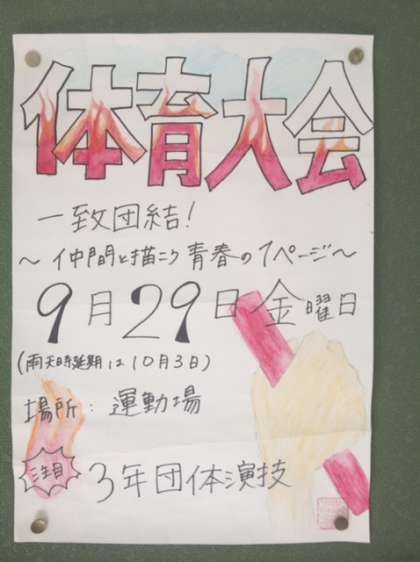 体育大会
一致団結!
～仲間と描こう青春の1ページ～
9月29日金曜日
(雨天時延期は10月3日)
場所：運動場
注目
3年団体演技